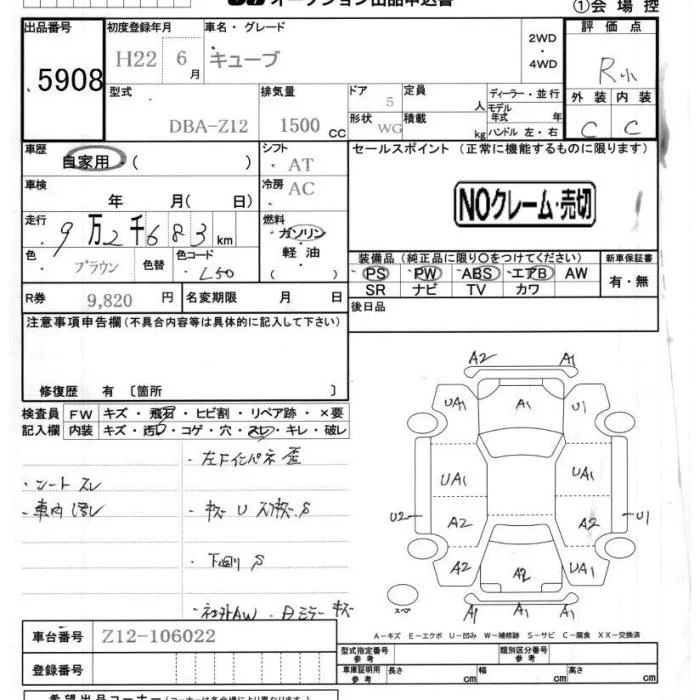 オークション出品申込書
①会場控
出品番号
5908
初度登録年月
H22 6月
車名・グレード
キューブ
2WD
・
4WD
評価点
R小
外装 内装
C C
型式
DBA-Z12
排気量
1500 CC
ドア
5
形状
WG
定員
人
積載
kg
ディーラー・並行
モデル年式 年
ハンドル 左・右
車歴
自家用・( )
シフト
AT
車検
年 月( 日)
冷房
AC
走行
9万2千683km
燃料
ガソリン
・
軽油
( )
色
ブラウン
色替
色コード
L50
R券
9,820 円
名変期限 月 日
セールスポイント (正常に機能するものに限ります)
NOクレーム・売切
装備品(純正品に限り〇をつけてください)
新車保証書
PS PW ABS エアB AW
SR ナビ TV カワ
有・無
後日品
注意事項申告欄(不具合内容等は具体的に記入して下さい)
修復歴 有〔箇所 〕
検査員記入欄
FW キズ・飛石・ヒビ割・リペア跡・×要
内装 キズ・汚レ・コゲ・穴・スレ・キレ・破レ
・シート スレ
・キズ U スリキズ S
・下回り S
・社外AW ・Bミラーキズ
A2 A1
UA1 A1 U1
UA1 UA1
U2 A2 A2 U1
A2 A2 UA1
A1 A1 A1
スペア
A-キズ E-エクボ U-凹み W-補修跡 S-サビ C-腐食 XX-交換済
車台番号
Z12-106022
登録番号
型式指定番号参考
類別区分番号参考
車庫証明用参考
長さ cm
幅 cm
高さ cm
希望出品コーナー